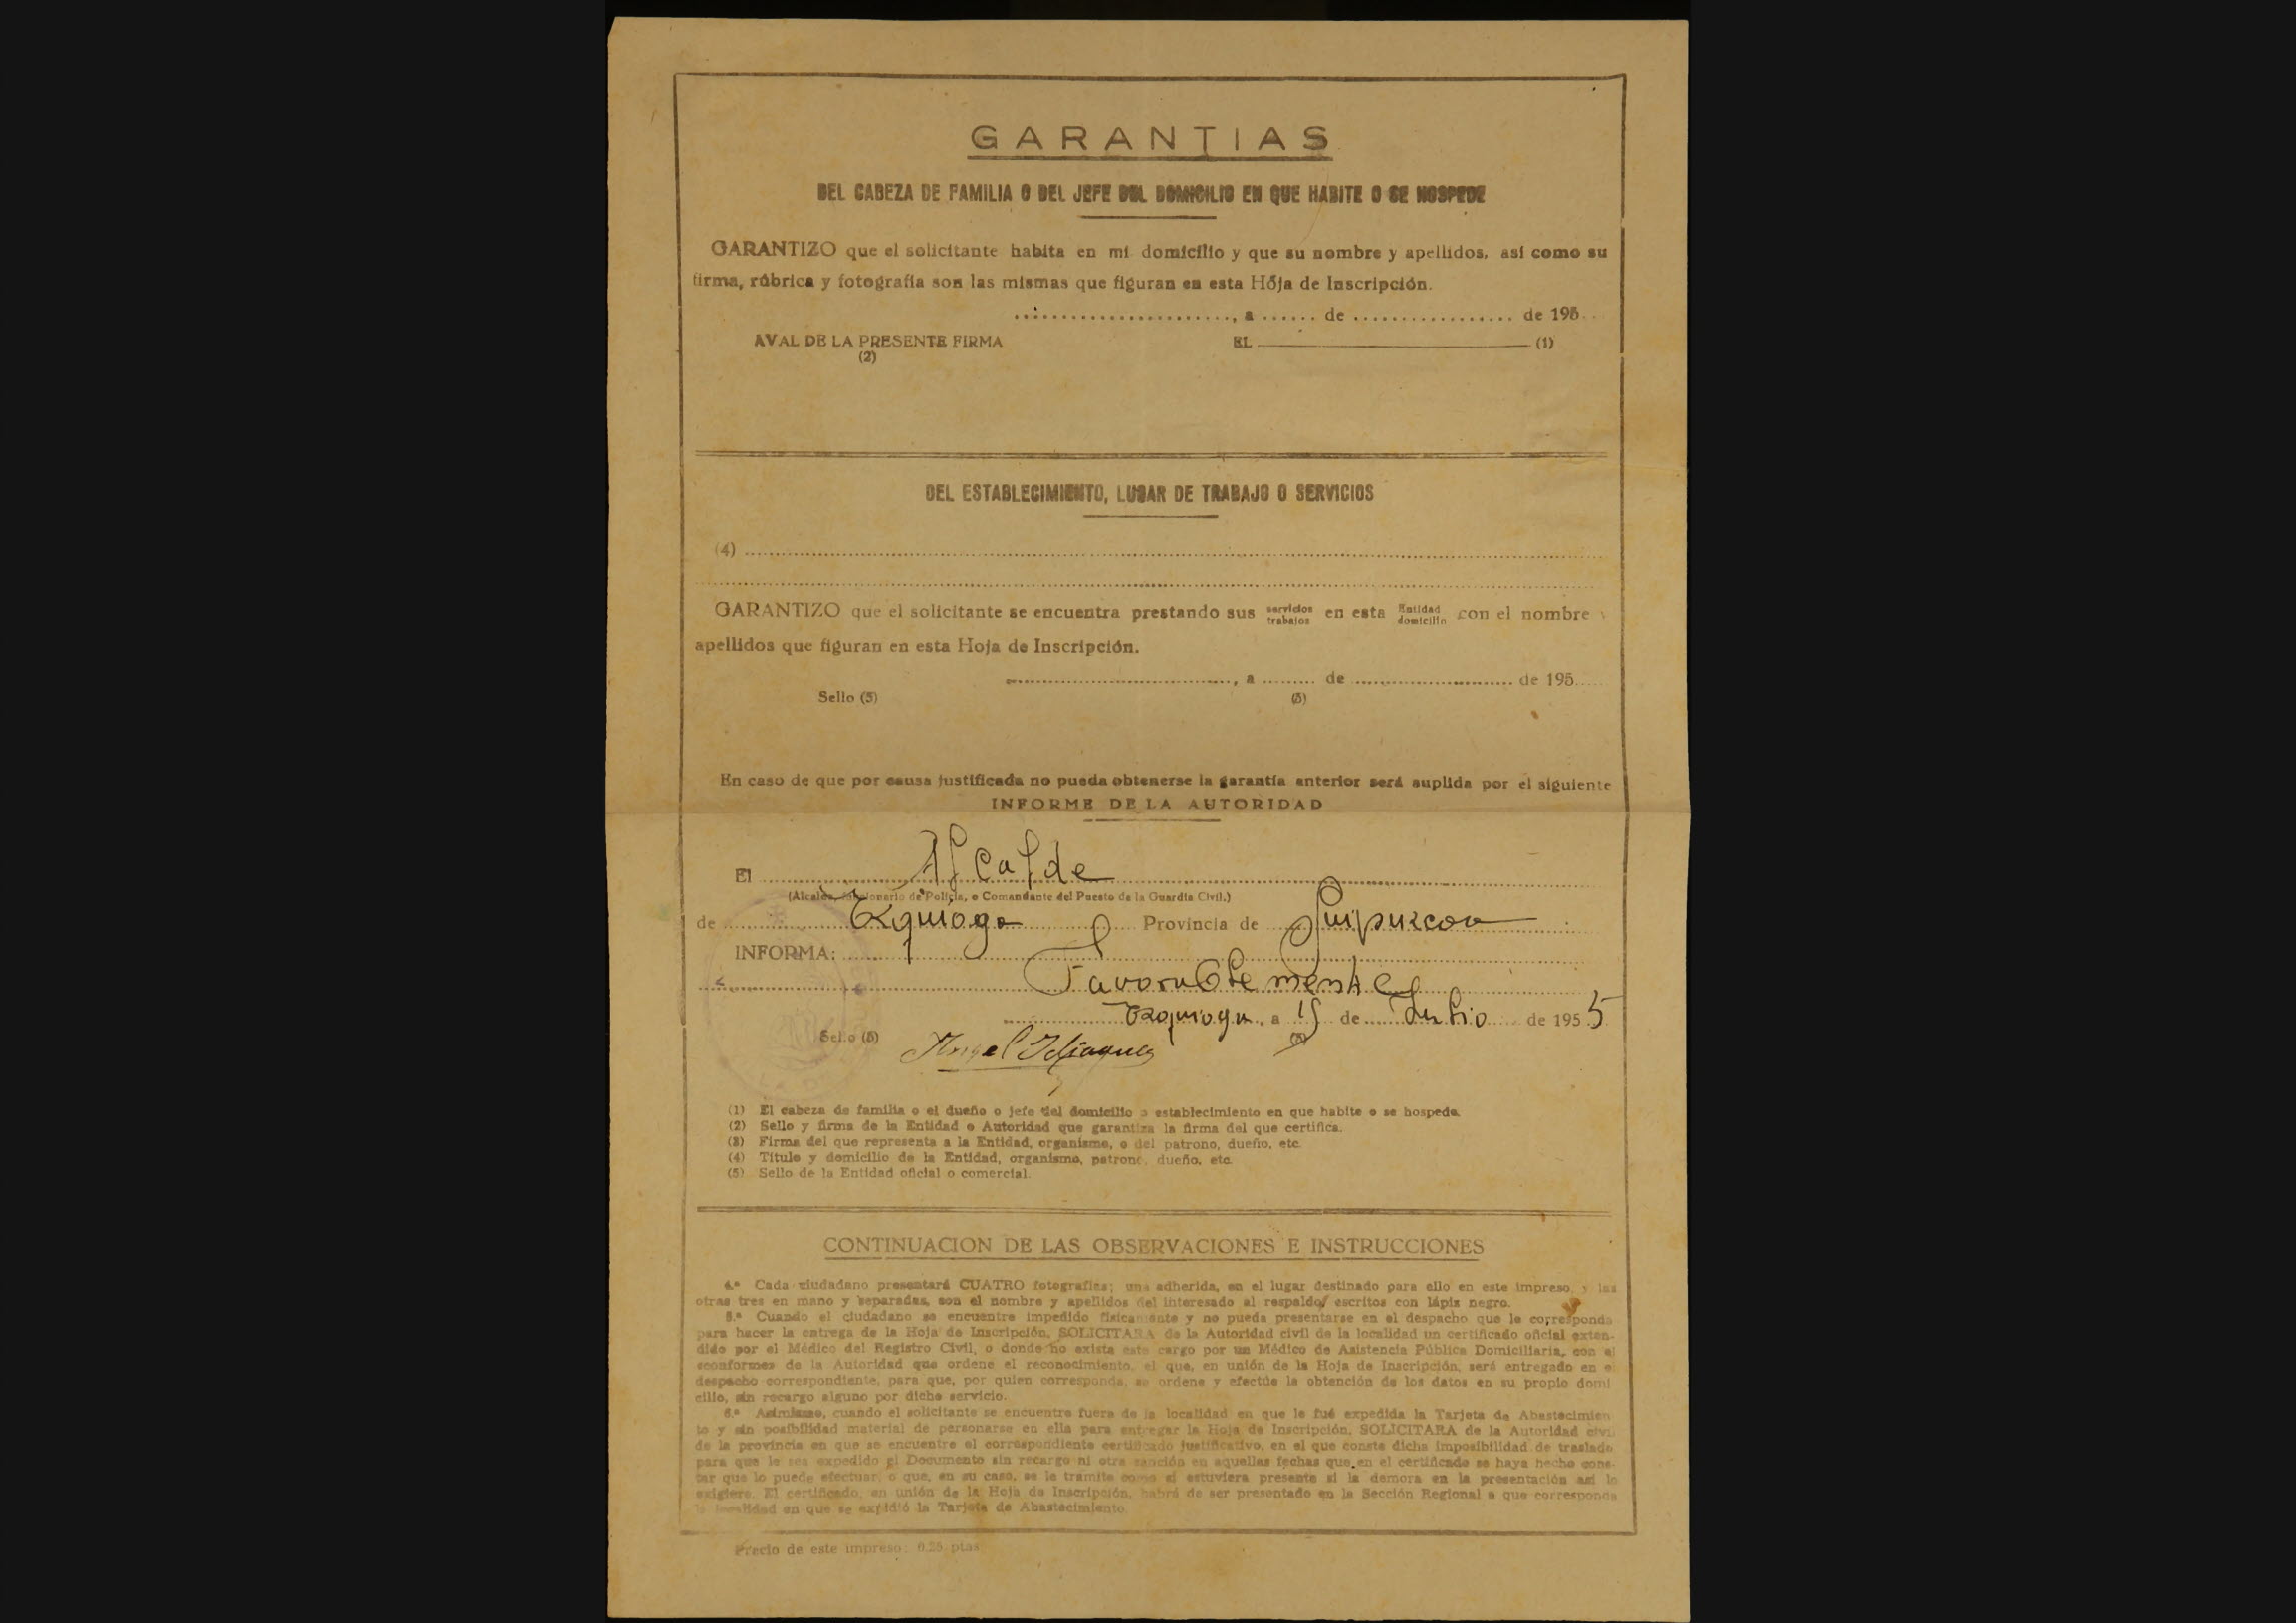 GARANTIAS
DEL CABEZA DE FAMILIA O DEL JEFE DEL DOMICILIO EN QUE HABITE O SE HOSPEDE
GARANTIZO que el solicitante habita en mi domicilio y que su nombre y apellidos, así como su
firma, rúbrica y fotografía son las mismas que figuran en esta Hoja de Inscripción.
, a ...... de ................. de 195
AVAL DE LA PRESENTE FIRMA EL (1)
(2)
DEL ESTABLECIMIENTO, LUGAR DE TRABAJO O SERVICIOS
(4)
GARANTIZO que el solicitante se encuentra prestando sus servicios trabajos en esta Entidad domicilio con el nombre y
apellidos que figuran en esta Hoja de Inscripción.
, a ......... de ......................... de 195
Sello (5) (3)
En caso de que por causa justificada no pueda obtenerse la garantía anterior será suplida por el siguiente
INFORME DE LA AUTORIDAD
El Alcalde
(Alcalde, funcionario de Policía, o Comandante del Puesto de la Guardia Civil.)
de Ezquioga Provincia de Guipuzcoa
INFORMA:
Favorablemente
Ezquioga, a 15 de Julio de 1955
Sello (5)
Angel
(1) El cabeza de familia o el dueño o jefe del domicilio o establecimiento en que habite o se hospede.
(2) Sello y firma de la Entidad o Autoridad que garantiza la firma del que certifica.
(3) Firma del que representa a la Entidad, organismo, o del patrono, dueño, etc.
(4) Título y domicilio de la Entidad, organismo, patrono, dueño, etc.
(5) Sello de la Entidad oficial o comercial.
CONTINUACION DE LAS OBSERVACIONES E INSTRUCCIONES
4.ª Cada ciudadano presentará CUATRO fotografías; una adherida, en el lugar destinado para ello en este impreso, y las
otras tres en mano y separadas, con el nombre y apellidos del interesado al respaldo, escritos con lápiz negro.
5.ª Cuando el ciudadano se encuentre impedido físicamente y no pueda presentarse en el despacho que le corresponda
para hacer la entrega de la Hoja de Inscripción, SOLICITARA de la Autoridad civil de la localidad un certificado oficial exten-
dido por el Médico del Registro Civil, o donde no exista este cargo por un Médico de Asistencia Pública Domiciliaria, con el
«conforme» de la Autoridad que ordene el reconocimiento, el que, en unión de la Hoja de Inscripción, será entregado en el
despacho correspondiente, para que, por quien corresponda, se ordene y efectúe la obtención de los datos en su propio domi
cilio, sin recargo alguno por dicho servicio.
6.ª Asimismo, cuando el solicitante se encuentre fuera de la localidad en que le fué expedida la Tarjeta de Abastecimien
to y sin posibilidad material de personarse en ella para entregar la Hoja de Inscripción, SOLICITARA de la Autoridad civil
de la provincia en que se encuentre el correspondiente certificado justificativo, en el que conste dicha imposibilidad de traslado
para que le sea expedido el Documento sin recargo ni otra sanción en aquellas fechas que en el certificado se haya hecho cons-
tar que lo puede efectuar, o que, en su caso, se le tramite como si estuviera presente si la demora en la presentación así lo
exigiere. El certificado, en unión de la Hoja de Inscripción, habrá de ser presentado en la Sección Regional a que corresponda
la localidad en que se expidió la Tarjeta de Abastecimiento.
Precio de este impreso: 0,25 ptas